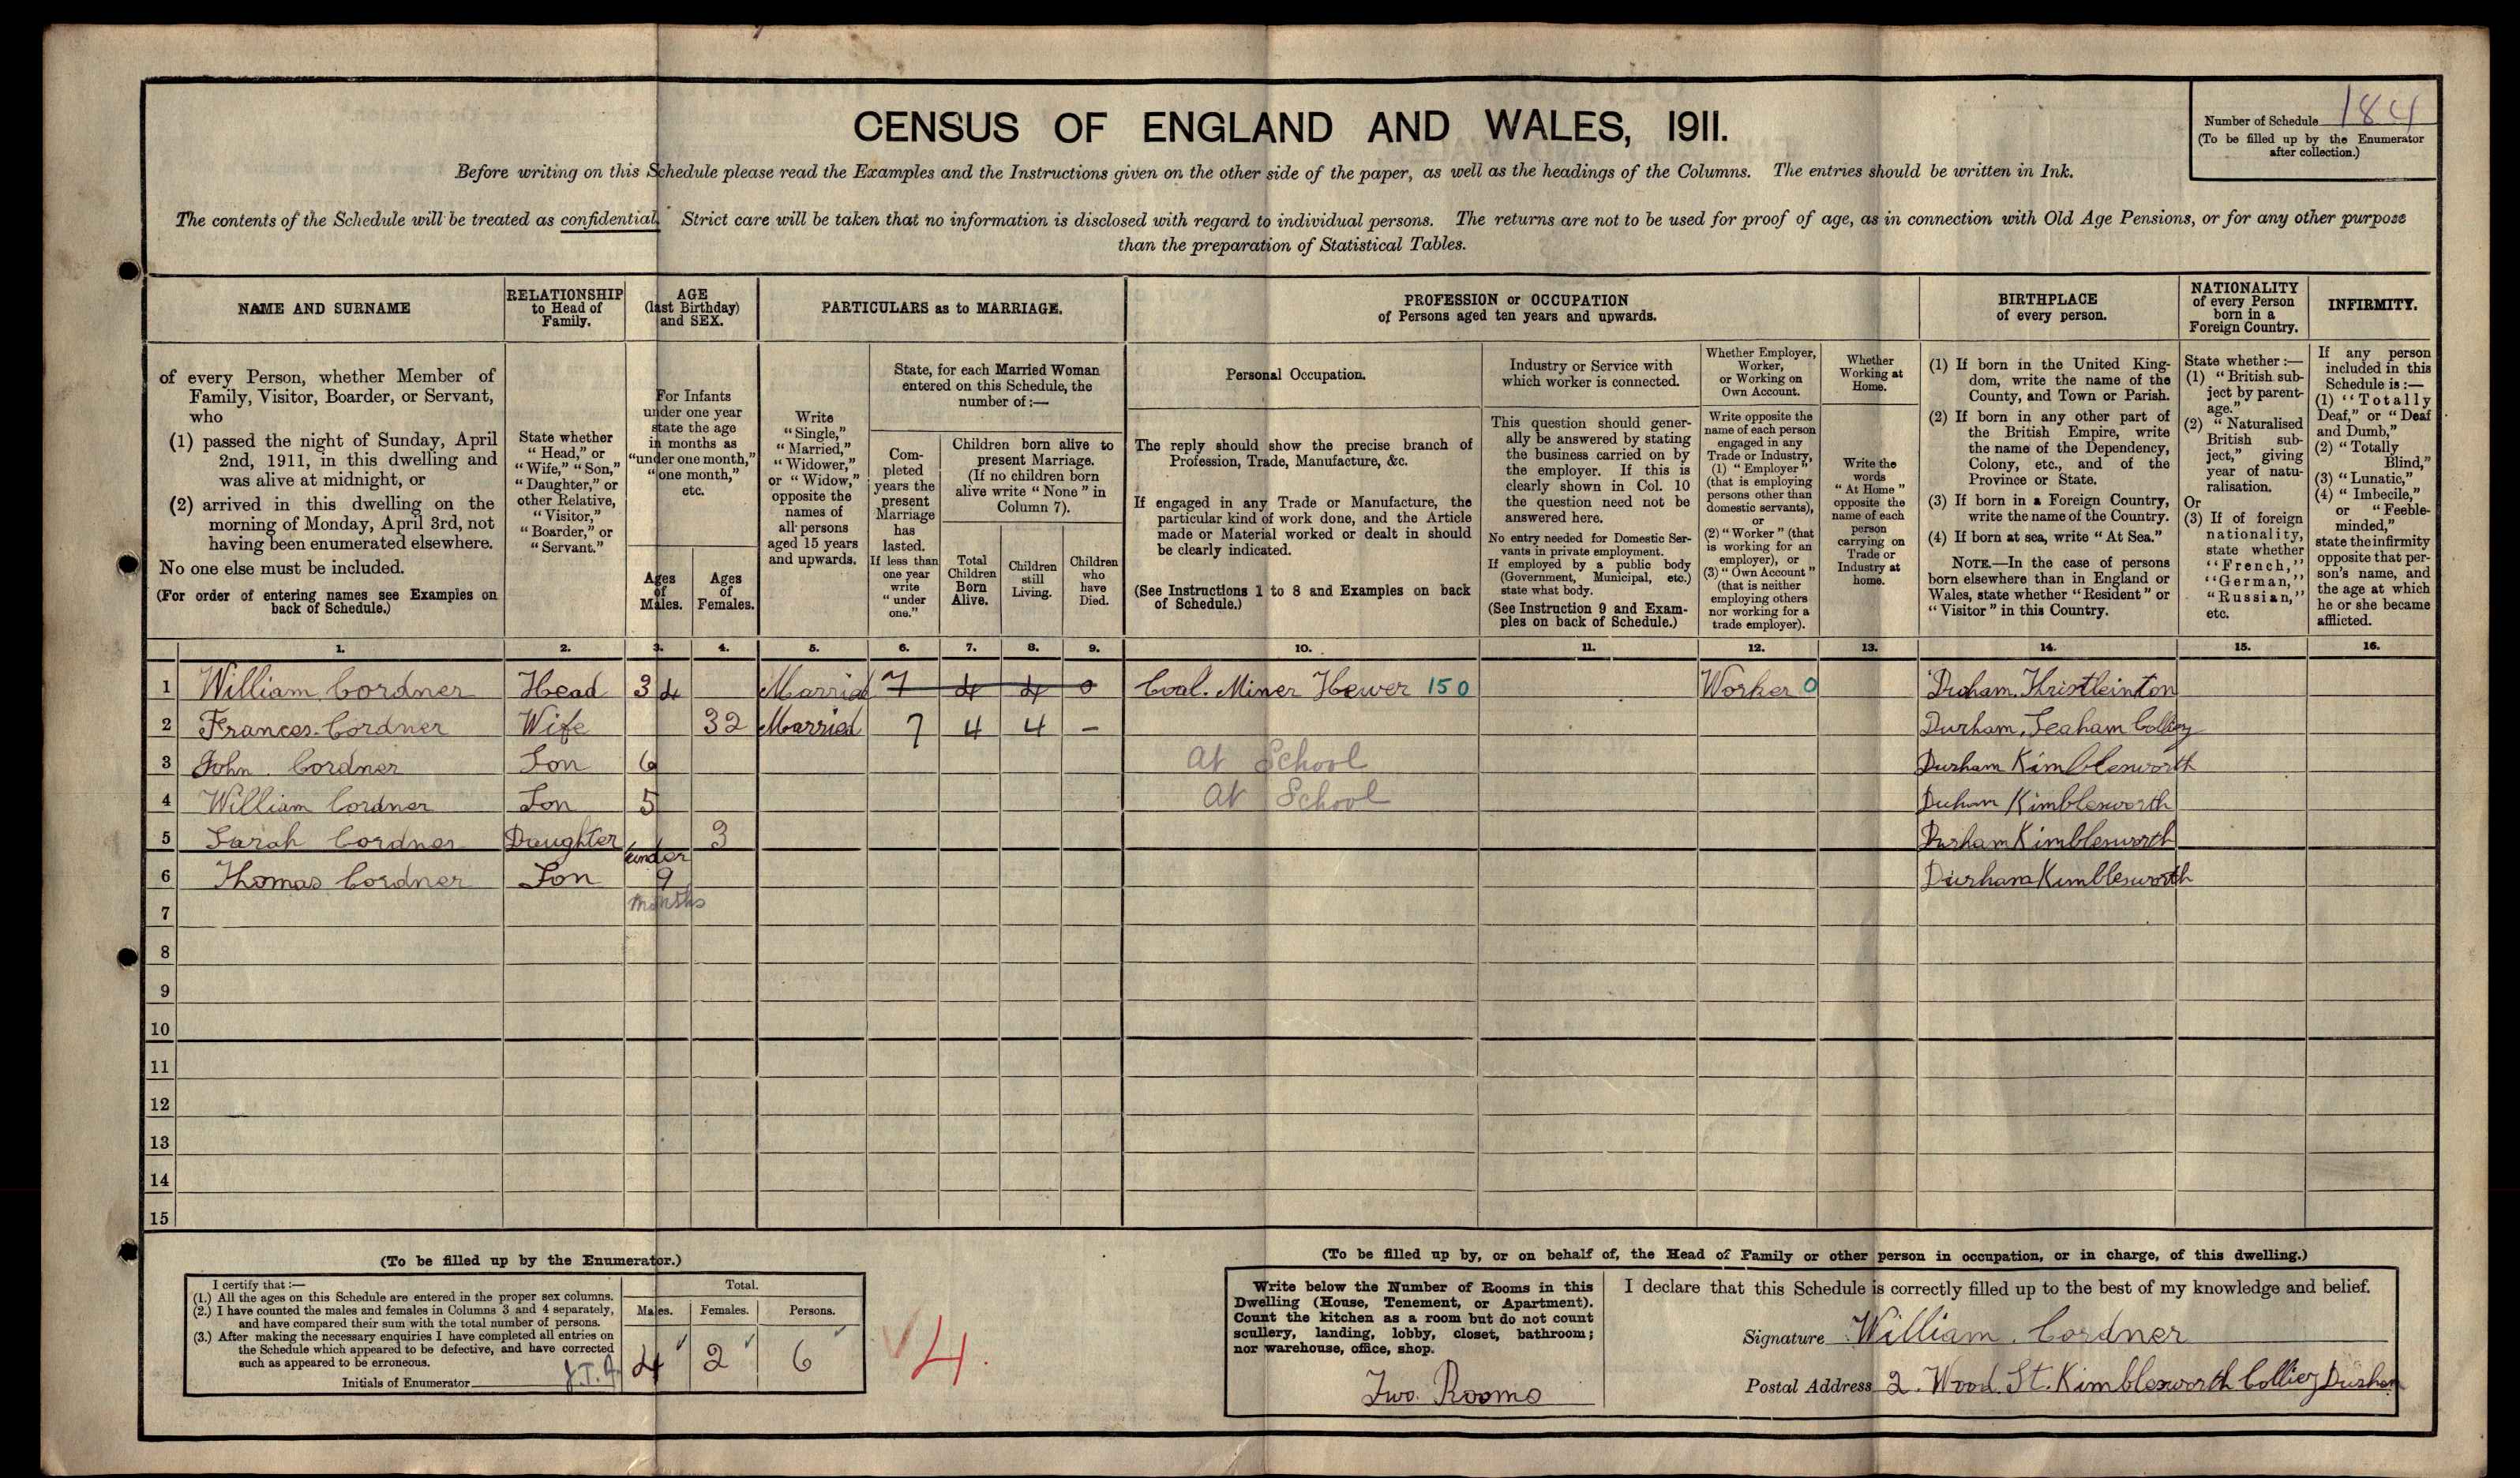 CENSUS OF ENGLAND AND WALES, 1911.
Number of Schedule 184
(To be filled up by the Enumerator
after collection.)
Before writing on this Schedule please read the Examples and the Instructions given on the other side of the paper, as well as the headings of the Columns. The entries should be written in Ink.
The contents of the Schedule will be treated as confidential. Strict care will be taken that no information is disclosed with regard to individual persons. The returns are not to be used for proof of age, as in connection with Old Age Pensions, or for any other purpose
than the preparation of Statistical Tables.
NAME AND SURNAME
of every Person, whether Member of
Family, Visitor, Boarder, or Servant,
who
(1) passed the night of Sunday, April
2nd, 1911, in this dwelling and
was alive at midnight, or
(2) arrived in this dwelling on the
morning of Monday, April 3rd, not
having been enumerated elsewhere.
No one else must be included.
(For order of entering names see Examples on
back of Schedule.)
RELATIONSHIP
to Head of
Family.
State whether
"Head," or
"Wife," "Son,"
"Daughter," or
other Relative,
"Visitor,"
"Boarder," or
"Servant."
AGE
(last Birthday)
and SEX.
For Infants
under one year
state the age
in months as
"under one month,"
"one month,"
etc.
Ages
of
Males.
Ages
of
Females.
PARTICULARS as to MARRIAGE.
Write
"Single,"
"Married,"
"Widower,"
or "Widow,"
opposite the
names of
all persons
aged 15 years
and upwards.
State, for each Married Woman
entered on this Schedule, the
number of:—
Com-
pleted
years the
present
Marriage
has
lasted.
If less than
one year
write
"under
one."
Children born alive to
present Marriage.
(If no children born
alive write "None" in
Column 7).
Total
Children
Born
Alive.
Children
still
Living.
Children
who
have
Died.
PROFESSION or OCCUPATION
of Persons aged ten years and upwards.
Personal Occupation.
The reply should show the precise branch of
Profession, Trade, Manufacture, &c.
If engaged in any Trade or Manufacture, the
particular kind of work done, and the Article
made or Material worked or dealt in should
be clearly indicated.
(See Instructions 1 to 8 and Examples on back
of Schedule.)
Industry or Service with
which worker is connected.
This question should gener-
ally be answered by stating
the business carried on by
the employer. If this is
clearly shown in Col. 10
the question need not be
answered here.
No entry needed for Domestic Ser-
vants in private employment.
If employed by a public body
(Government, Municipal, etc.)
state what body.
(See Instruction 9 and Exam-
ples on back of Schedule.)
Whether Employer,
Worker,
or Working on
Own Account.
Write opposite the
name of each person
engaged in any
Trade or Industry,
(1) "Employer"
(that is employing
persons other than
domestic servants),
or
(2) "Worker" (that
is working for an
employer), or
(3) "Own Account"
(that is neither
employing others
nor working for a
trade employer).
Whether
Working at
Home.
Write the
words
"At Home"
opposite the
name of each
person
carrying on
Trade or
Industry at
home.
BIRTHPLACE
of every person.
(1) If born in the United King-
dom, write the name of the
County, and Town or Parish.
(2) If born in any other part of
the British Empire, write
the name of the Dependency,
Colony, etc., and of the
Province or State.
(3) If born in a Foreign Country,
write the name of the Country.
(4) If born at sea, write "At Sea."
NOTE.—In the case of persons
born elsewhere than in England or
Wales, state whether "Resident" or
"Visitor" in this Country.
NATIONALITY
of every Person
born in a
Foreign Country.
State whether:—
(1) "British sub-
ject by parent-
age."
(2) "Naturalised
British sub-
ject," giving
year of natu-
ralisation.
Or
(3) If of foreign
nationality,
state whether
"French,"
"German,"
"Russian,"
etc.
INFIRMITY.
If any person
included in this
Schedule is:—
(1) "Totally
Deaf," or "Deaf
and Dumb,"
(2) "Totally
Blind,"
(3) "Lunatic,"
(4) "Imbecile,"
or "Feeble-
minded,"
state the infirmity
opposite that per-
son's name, and
the age at which
he or she became
afflicted.
1. 2. 3. 4. 5. 6. 7. 8. 9. 10. 11. 12. 13. 14. 15. 16.
1 William Cordner Head 34 Married 7 4 4 0 Coal. Miner Hewer 150 Worker 0 Durham.
2 Frances Cordner Wife 32 Married 7 4 4 – Durham, Seaham Colliery
3 John Cordner Son 6 At School Durham Kimblesworth
4 William Cordner Son 5 At School Durham Kimblesworth
5 Sarah Cordner Daughter 3 Durham Kimblesworth
6 Thomas Cordner Son under 9 months Durham Kimblesworth
7
8
9
10
11
12
13
14
15
(To be filled up by the Enumerator.)
I certify that:—
(1.) All the ages on this Schedule are entered in the proper sex columns.
(2.) I have counted the males and females in Columns 3 and 4 separately,
and have compared their sum with the total number of persons.
(3.) After making the necessary enquiries I have completed all entries on
the Schedule which appeared to be defective, and have corrected
such as appeared to be erroneous.
Initials of Enumerator
Total.
Males. Females. Persons.
4 2 6
4.
(To be filled up by, or on behalf of, the Head of Family or other person in occupation, or in charge, of this dwelling.)
Write below the Number of Rooms in this
Dwelling (House, Tenement, or Apartment).
Count the kitchen as a room but do not count
scullery, landing, lobby, closet, bathroom;
nor warehouse, office, shop.
Two. Rooms
I declare that this Schedule is correctly filled up to the best of my knowledge and belief.
Signature William. Cordner
Postal Address 2. Wood. St. Kimblesworth Colliery Durham